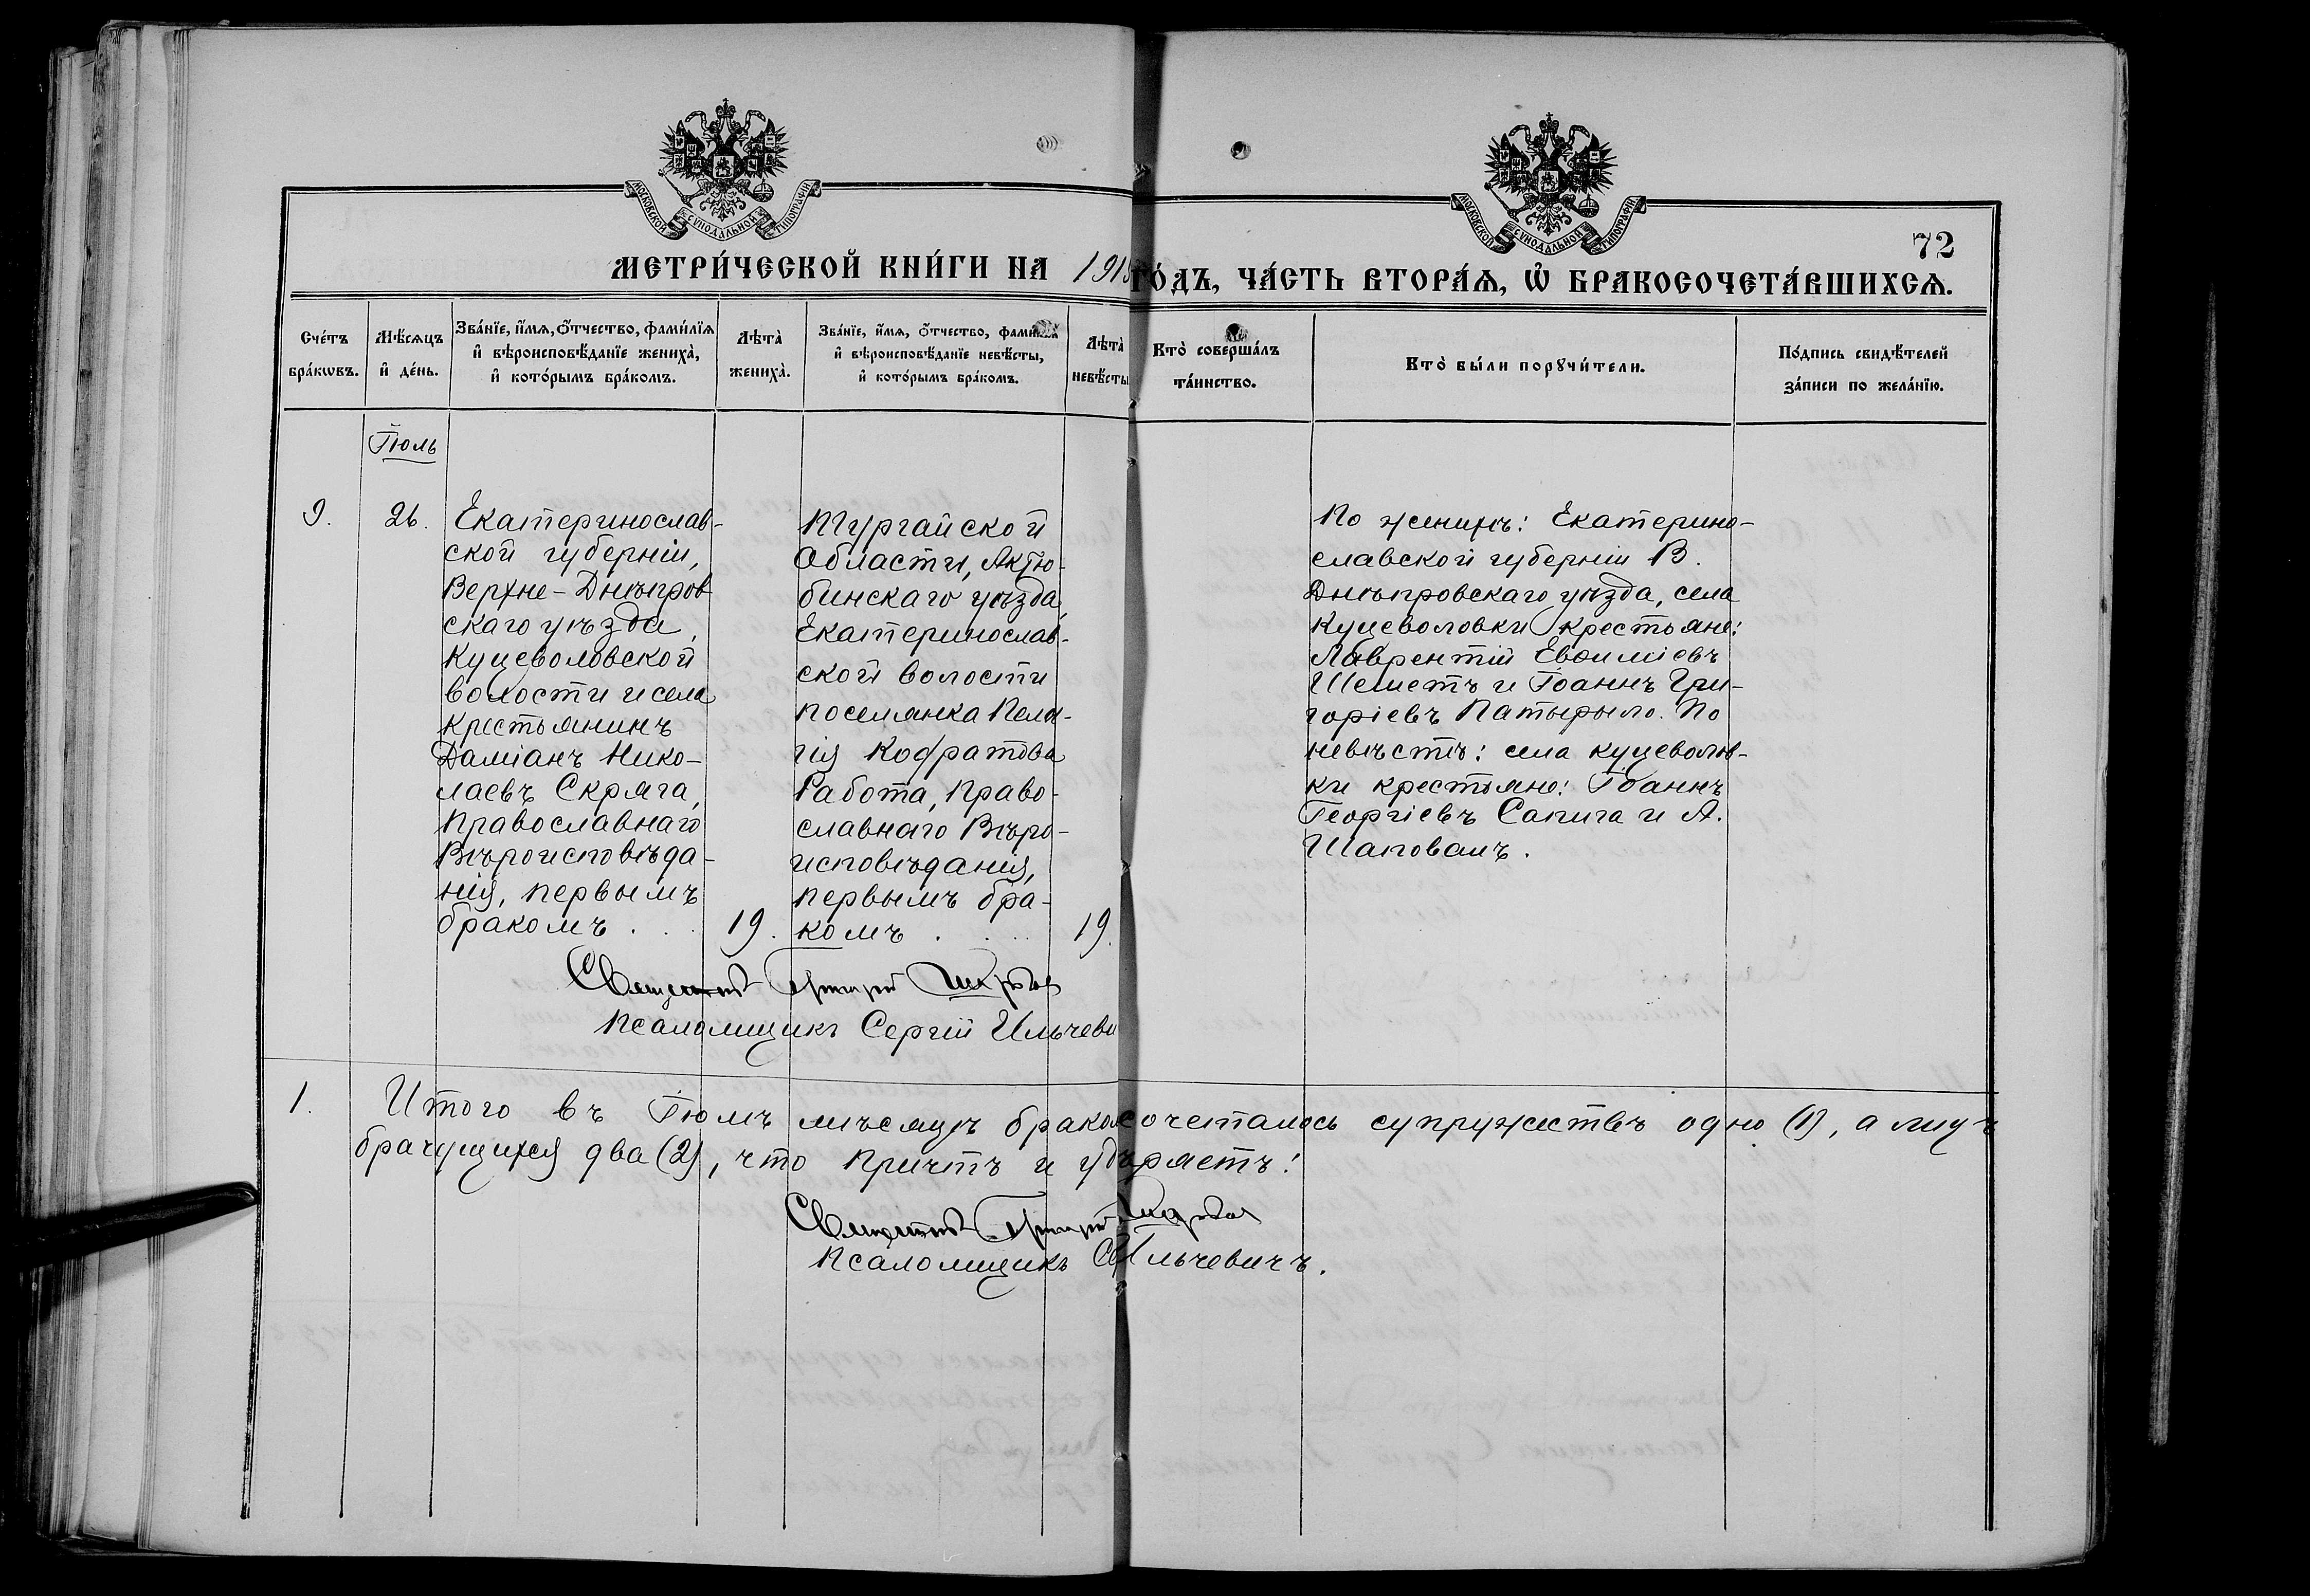 МОСКОВСКОЙ СУНОДАЛЬНОЙ ТИПОГРАФІИ
МОСКОВСКОЙ СУНОДАЛЬНОЙ ТИПОГРАФІИ
72
МЕТРИ́ЧЕСКОЙ КНИ́ГИ НА 191 ГО́ДЪ, ЧА́СТЬ ВТОРА́Ѧ, Ѽ БРАКОСОЧЕТА́ВШИХСѦ.
Сче́тъ бра́кѡвъ.
Мѣ́сѧцъ и҆ де́нь.
Зва́нїе, и҆́мѧ, ѻ҆́тчество, фами́лїѧ и҆ вѣроисповѣ́данїе жениха̀, и҆ кото́рымъ бра́комъ.
Лѣта̀ жениха̀.
Зва́нїе, и҆́мѧ, ѻ҆́тчество, фами́лїѧ и҆ вѣроисповѣ́данїе невѣ́сты, и҆ кото́рымъ бра́комъ.
Лѣта̀ невѣ́сты
Кто̀ соверша́лъ та́инство.
Кто̀ бы́ли порꙋчи́тели.
По́дпись свидѣ́телей за́писи по жела́нїю.
Іюль
9.
26.
Екатеринослав-
ской губерніи,
Верхне-Днѣпров
скаго уѣзда,
Куцеволовской
волости и села
крестьянинъ
Даміанъ Нико-
лаевъ Скряга,
Православнаго
Вѣроисповѣда-
нія, первымъ
бракомъ . . .
19.
Тургайской
Области, Актю-
бинскаго уѣзда,
Екатеринослав-
ской волости
поселянка Пела-
гія Кодратова
Работа, Право-
славнаго Вѣро-
исповѣданія,
первымъ бра-
комъ . . .
19.
По женихѣ: Екатерино-
славской губерніи В.
Днѣпровскаго уѣзда, села
Куцеволовки крестьяне:
Лаврентій Евѳиміевъ
Шеметъ и Іоаннъ Гри-
горіевъ Патырыло. По
невѣстѣ: села Куцеволов-
ки крестьяне: Іоаннъ
Георгіевъ Сапига и А.
Шаповалъ.
Священникъ Григорій
Псаломщикъ Сергій Ильчеви
1.
Итого въ Іюлѣ мѣсяцѣ бракосочеталось супружествъ одно (1), а лицъ
брачущихся два (2), что Причтъ и удостовѣряетъ:
Священникъ Григорій
Псаломщикъ С Ильчевичъ.